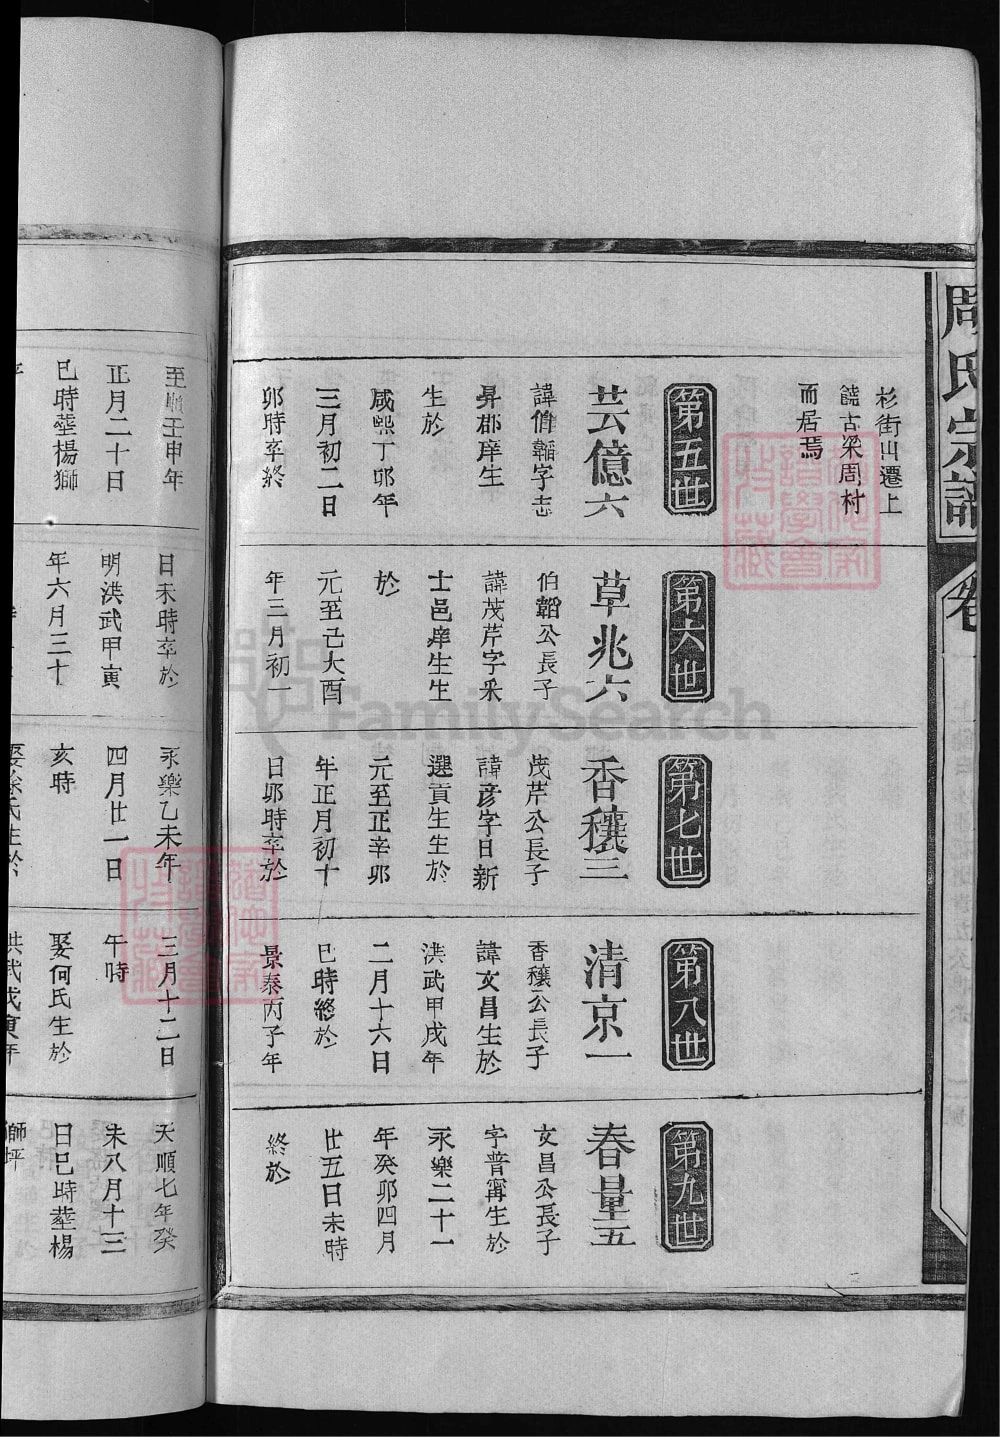 周氏宗譜
卷
杉街出遷上
饒古梁周村
而居焉
第五世
芸億六
諱伯韜字志
昇郡庠生
生於
咸熙丁卯年
三月初二日
卯時卒終
第六世
草兆六
伯韜公長子
諱茂芹字采
士邑庠生生
於
元至己大酉
年三月初一
第七世
香穰三
茂芹公長子
諱彦字日新
選貢生生於
元至正辛卯
年正月初十
日卯時卒於
第八世
清京一
香穰公長子
諱文昌生於
洪武甲戌年
二月十六日
巳時終於
景泰丙子年
第九世
春量五
文昌公長子
字普甯生於
永樂二十一
年癸卯四月
廿五日未時
終於
至順壬申年
正月二十日
巳時塟楊獅
坪
日未時卒於
明洪武甲寅
年六月三十
永樂乙未年
四月廿一日
亥時
娶徐氏生於
三月十二日
午時
娶何氏生於
洪武戊寅年
天順七年癸
未八月十三
日巳時塟楊
師坪
FamilySearch